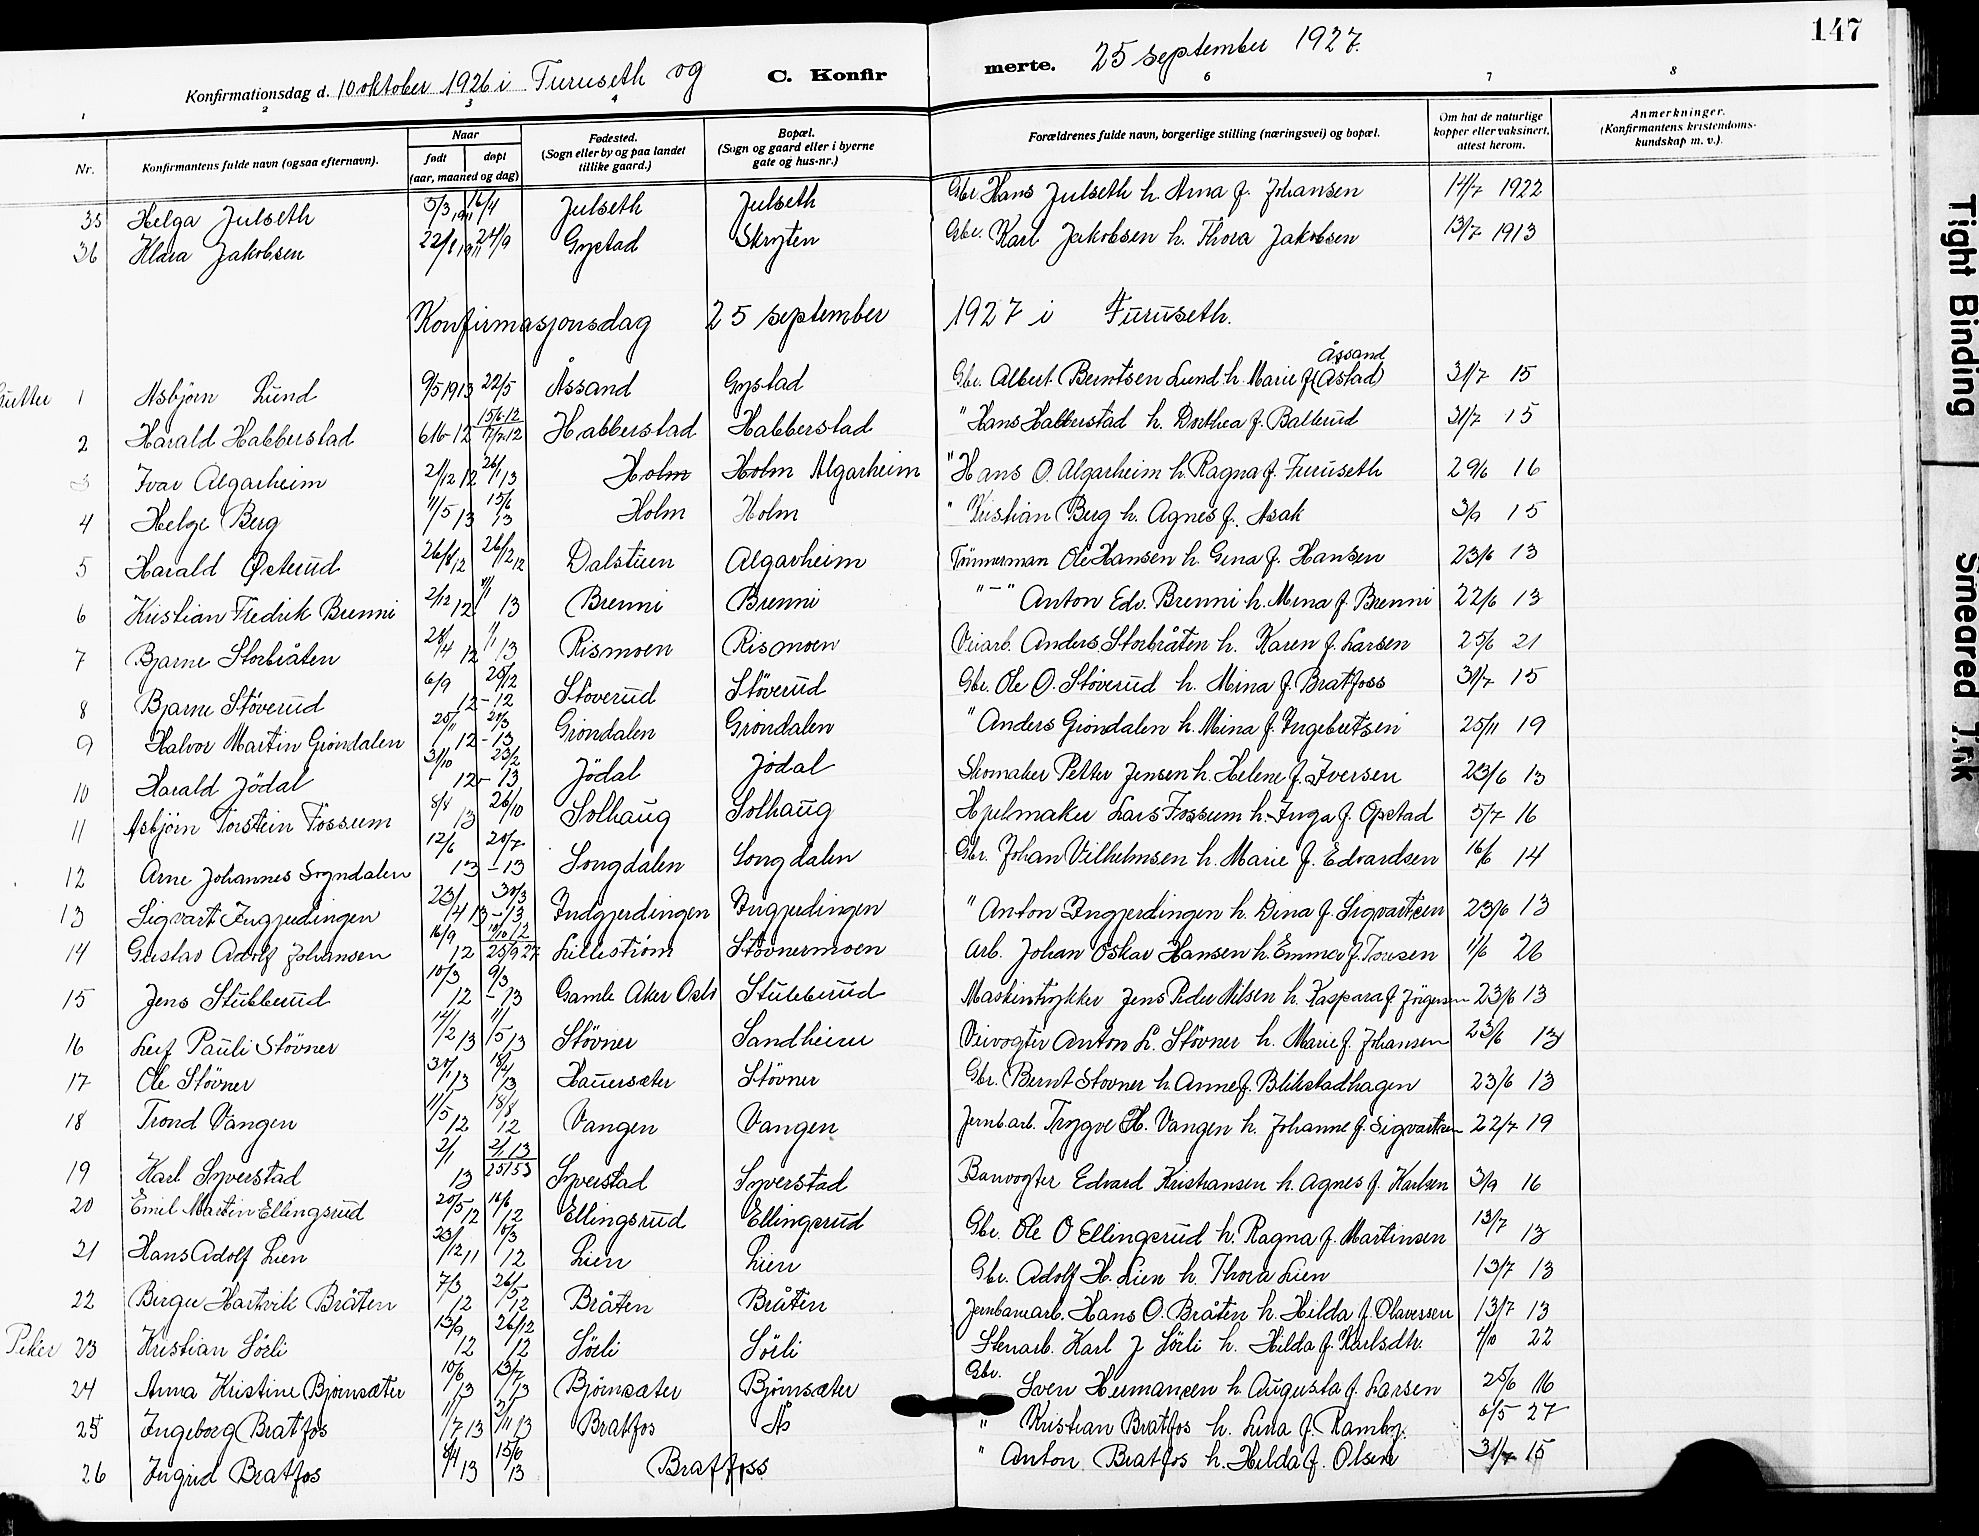 147
Konfirmationsdag d. 10 oktober 1926 i Furuseth og C. Konfirmerte. 25 september 1927.
1 2 3 4 6 7 8
Nr. Konfirmantens fulde navn (ogsaa efternavn). Naar født døpt (aar, maaned og dag) Fødested. (Sogn eller by og paa landet tillike gaard.) Bopæl. (Sogn og gaard eller i byerne gate og hus-nr.) Forældrenes fulde navn, borgerlige stilling (næringsvei) og bopæl. Om hat de naturlige kopper eller vaksinert, attest herom. Anmerkninger. (Konfirmantens kristendomskundskap m. v.).
35 Helga Julseth 5/3 1911 16/4 Julseth Julseth Gbr. Hans Julseth h. Anna f. Johansen 14/7 1922
36 Klara Jakobsen 22/8 1911 24/9 Gystad Skryten Gbr. Karl Jakobsen h. Thora Jakobsen 13/7 1913
Konfirmasjonsdag 25 september 1927 i Furuseth.
Gutter 1 Asbjörn Lund 9/5 1913 22/5 Åssand Gystad Gbr. Albert Berntsen Lund h. Marie f. (Åstad) Åssand 31/7 15
2 Harald Habberstad 6/6-12 15/6-12 17/2-12 Habberstad Habberstad " Hans Habberstad h. Dorthea f. Ballerud 31/7 15
3 Ivar Algarheim 21/12 12 26/1 13 Holm Holm Algarheim " Hans O. Algarheim h. Ragna f. Furuseth 29/6 16
4 Helge Berg 11/5 13 15/6 13 Holm Holm " Kristian Berg h. Agnes f. Asak 3/9 15
5 Harald Østerud 26/8 12 26/12 12 Dalstuen Algarheim Tömmerman Ole Hansen h. Gina f. Hansen 23/6 13
6 Kristian Fredrik Brenni 2/12 12 1/1 13 Brenni Brenni " - " Anton Edv. Brenni h. Mina f. Brenni 22/6 13
7 Bjarne Storbråten 28/4 12 1/1 13 Rismoen Rismoen Veiarb. Anders Storbråten h. Karen f. Larsen 25/6 21
8 Bjarne Stöverud 6/9 12 25/12 - 12 Stöverud Stöverud Gbr. Ole O. Stöverud h. Mina f. Bratfoss 31/7 15
9 Halvor Martin Gröndalen 25/11 12 - 13 Gröndalen Gröndalen " Anders Gröndalen h. Mina f. Ingebretsen 25/11 19
10 Harald Jödal 31/10 12 23/2 - 13 Jödal Jödal Skomaker Petter Jensen h. Helene f. Iversen 23/6 13
11 Asbjörn Torstein Fossum 8/8 13 26/10 Solhaug Solhaug Hjulmaker Lars Fossum h. Inga f. Opstad 5/7 16
12 Arne Johannes Sogndalen 12/6 13 20/7 - 13 Songdalen Songdalen Gbr. Johan Vilhelmsen h. Marie f. Edvardsen 16/6 14
13 Sigvart Ingjerdingen 23/4 13 30/3 - 13 Indgjerdingen Ingjerdingen " Anton Ingjerdingen h. Dina f. Sigvartsen 23/6 13
14 Gustav Adolf Johansen 16/9 12 10/10 12 25/9 27 Lilleström Stövnermoen Arb. Johan Oskar Hansen h. Emma f. 1/6 26
15 Jens Stubberud 10/3 12 9/3 - 13 Gamle Aker Oslo Stubberud Maskintrykker Jens Peder Nilsen h. Kaspara f. Jörgensen 23/6 13
16 Leif Pauli Stövner 12/2 13 1/5 13 Stövner Sandheim Veivogter Anton L. Stövner h. Marie f. Johansen 23/6 13
17 Ole Stövner 30/1 13 18/4 13 Hauersæter Stövner Gbr. Bernt Stovner h. Anne f. Blikstadhagen 23/6 13
18 Trond Vangen 11/5 12 18/8 12 Vangen Vangen Jernb.arb. Trygve H. Vangen h. Johanne f. Sigvartsen 22/7 19
19 Karl Syverstad 2/1 13 2/1 13 25/5 53 Syverstad Syverstad Banvogter Edvard Kristiansen h. Agnes f. Karlsen 3/9 16
20 Emil Martin Ellingsrud 20/5 12 16/6 12 Ellingsrud Ellingsrud Gbr. Ole O Ellingsrud h. Ragna f. Martinsen 13/7 13
21 Hans Adolf Lien 23/12 11 10/3 12 Lien Lien Gbr. Adolf H. Lien h. Thora Lien 13/7 13
22 Birger Hartvik Bråten 7/3 12 26/5 12 Bråten Bråten Jernbanearb. Hans O. Bråten h. Hilda f. Olavessen 13/7 13
Piker 23 Kristian Sörli 13/9 12 26/12 12 Sörli Sörli Stenarb. Karl J Sörli h. Hilda f. Karlsdtr. 4/10 22
24 Anna Kristine Björnsæter 10/6 13 13/7 13 Björnsæter Björnsæter Gbr. Sven Hermansen h. Augusta f. Larsen 25/6 16
25 Ingeborg Bratfos 1/7 13 2/11 13 Bratfos Ås " Kristian Bratfos h. Lina f. Ramby. 6/5 27
26 Ingrid Bratfos 8/4 13 15/6 13 Bratfoss " Anton Bratfos h. Hilda f. Olsen 31/7 15
Tight Binding
Smeared Ink